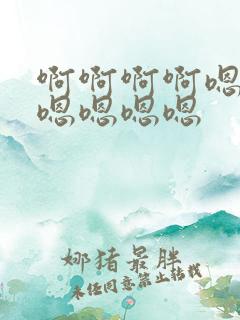 啊啊啊啊嗯
嗯嗯嗯嗯
娜猪最胜
未经同意禁止转载